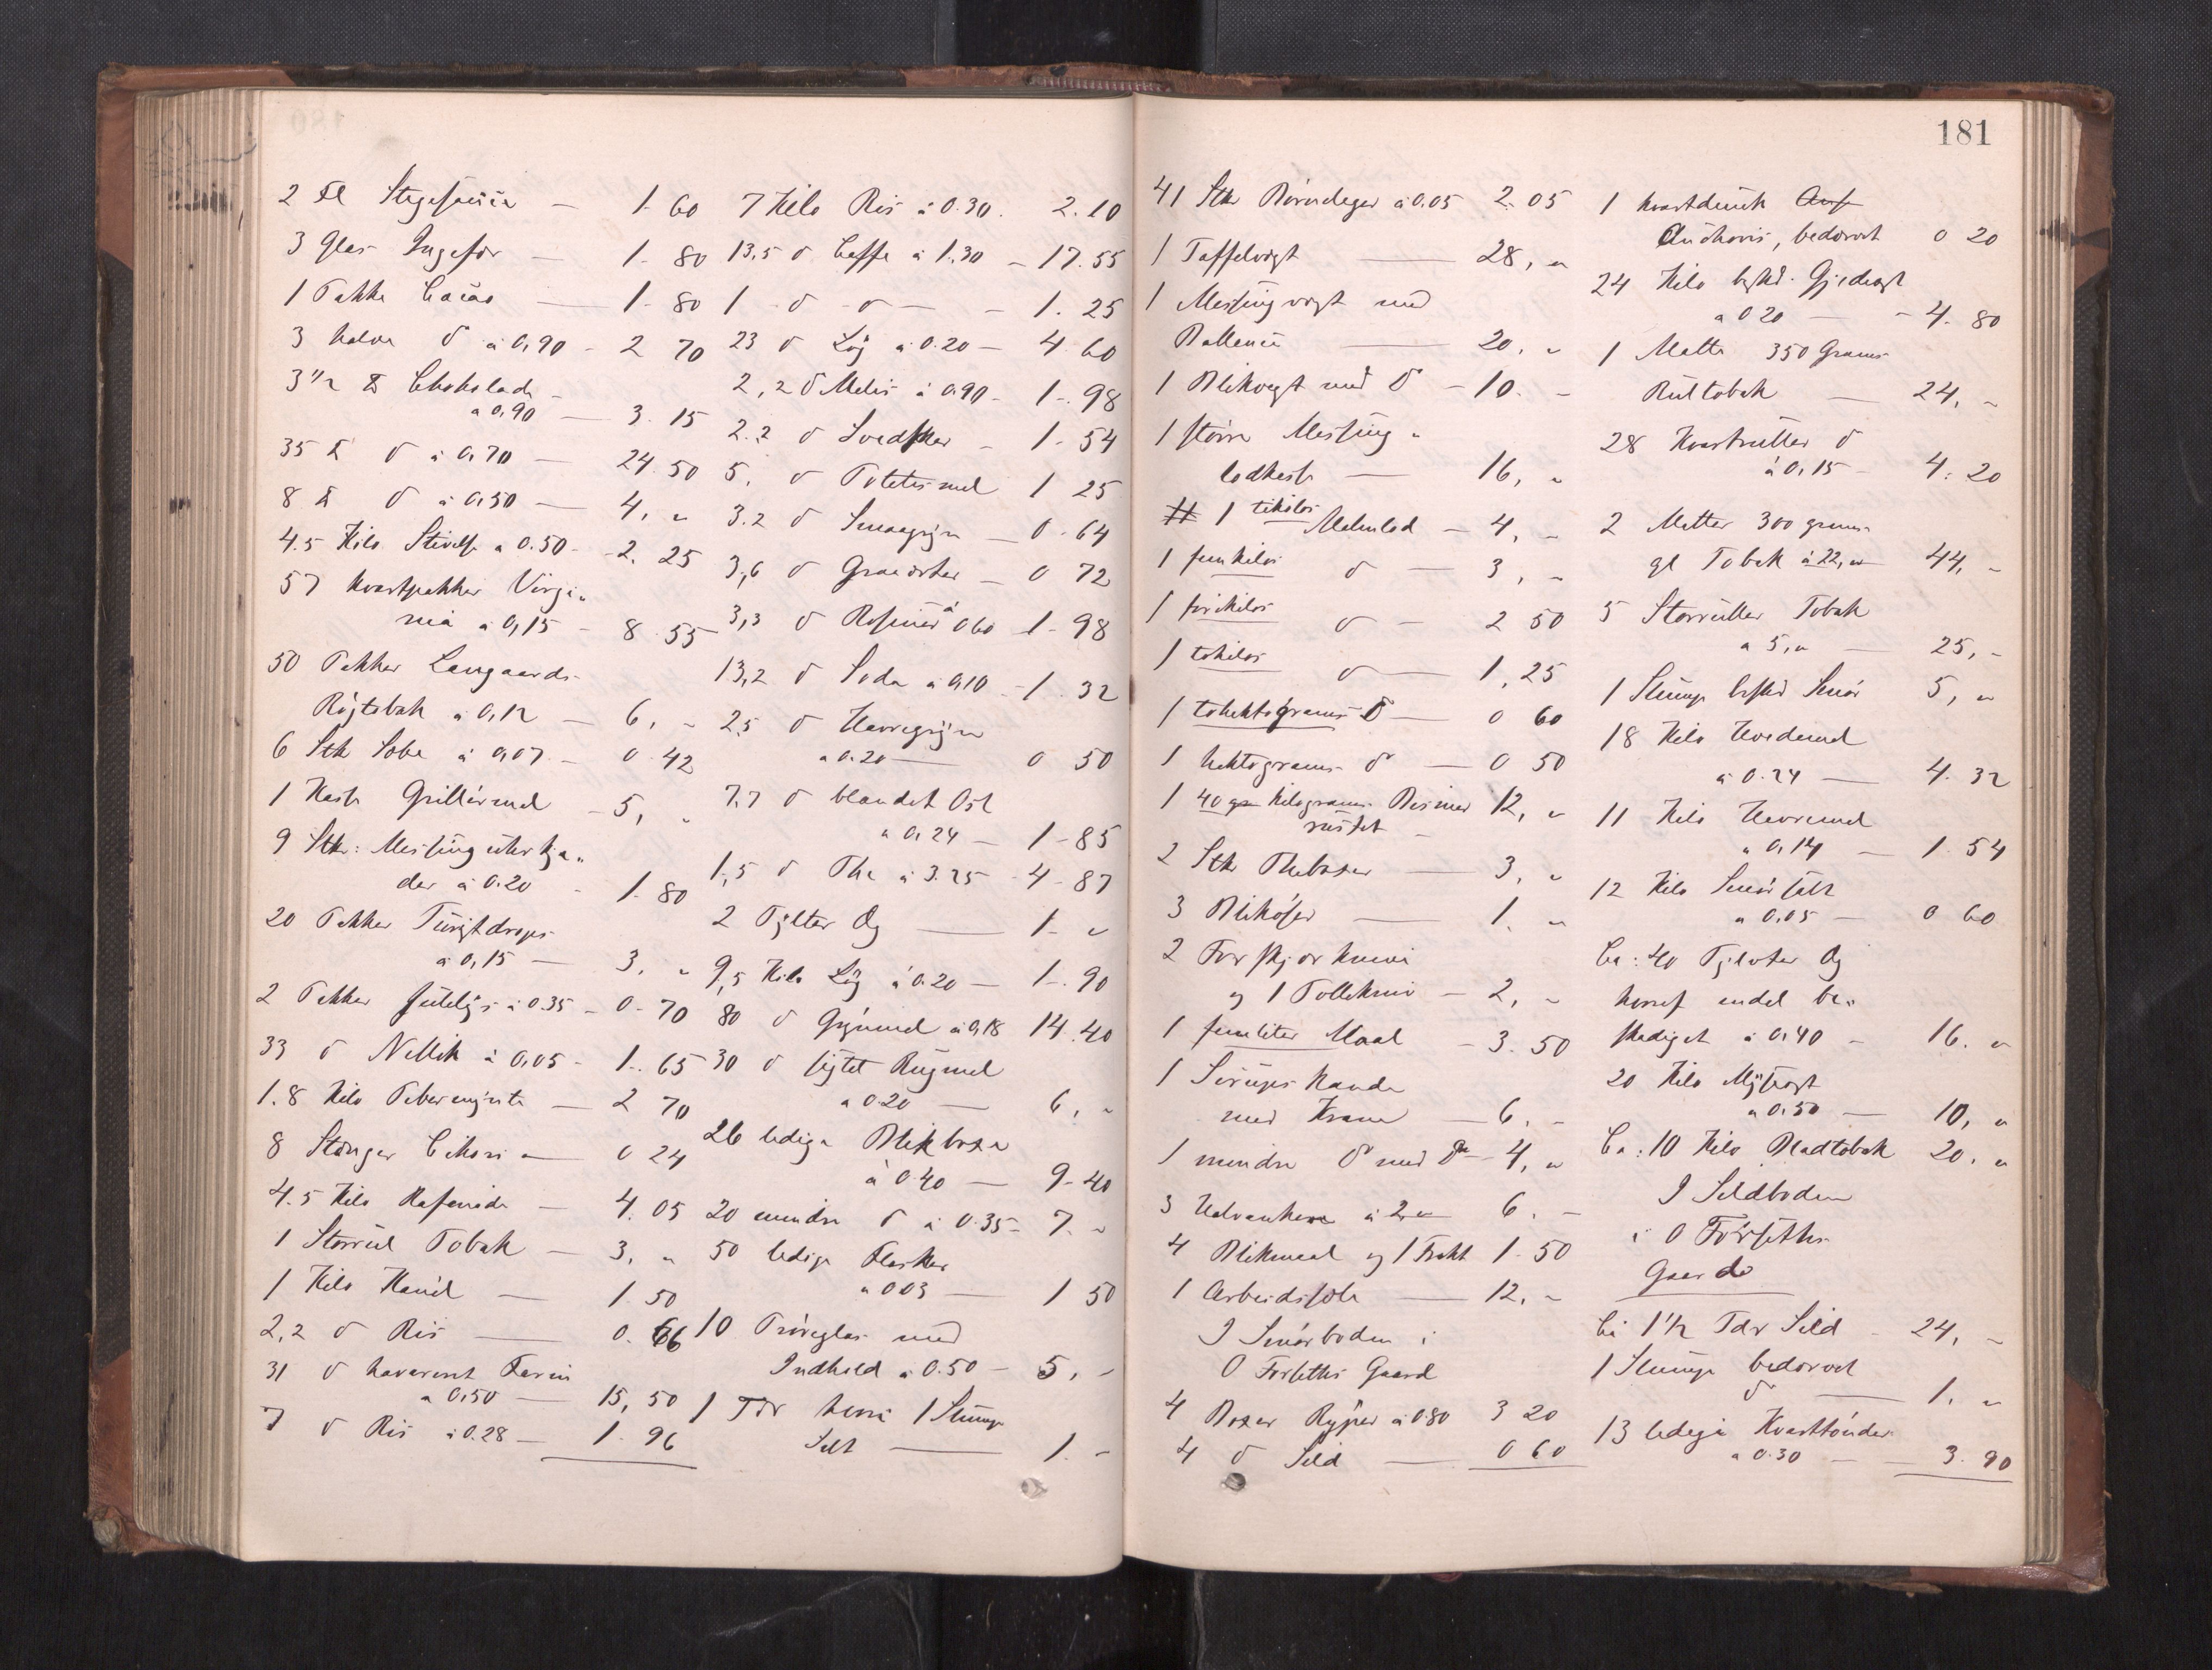 2 Fl Stegesauce — 1. 60
3 Glas Ingefær — 1. 80
1 Pakke Cacao — 1. 80
3 halve d à 0,90 – 2 70
3 1/2 ℔ Chokolade
a 0,90 — 3. 15
35 ℔ d à 0,70 — 24. 50
8 ℔ d à 0,50 — 4, "
4.5 Kilo Stivelse a 0.50 – 2. 25
57 kvartpakker Virgi„
nia à 0,15 – 8. 55
50 Pakker Langaards
Røgtobak à 0,12 — 6, "
6 Stk Sæbe à 0,07 — 0. 42
1 Kasse Grillérmel – 5, "
9 Stk: Messinguhrkja„
der à 0.20 – 1. 80
20 Pakker Turistdrops
à 0,15 — 3, "
2 Pakker à 0.35 – 0. 70
33 d Nellik à 0,05 – 1. 65
1.8 Kilo Pebermynte — 2 70
8 Stænger Cikori — 0 24
4.5 Kilo Rafenade — 4. 05
1 Storrul Tobak — 3, "
1 Kilo Kanel — 1. 50
2,2 d Ris — 0. 66
31 d havareret Farin
a 0,50 — 15, 50
7 d Ris à 0.28 — 1. 96
7 Kilo Ris à 0.30. 2.10
13,5 d Caffe à 1,30 – 17.55
1 d d — 1. 25
23 d Løg à 0.20 — 4. 60
2,2 d Melis à 0,90 – 1. 98
2.2 d Svedsker – 1. 54
5, d Potetesmel 1 25
3.2 d Smaagryn — 0. 64
3,6 d Graaerter — 0 72
3,3 d Rosiner à 0.60 1. 98
13,2 d Soda à 0,10 – 1. 32
2.5 d Havregryn
a 0.20 — 0 50
7.7 d blandet Ost
a 0,24 — 1. 85
1,5 d The à 3.25 – 4. 87
2 Æg — 1. "
9,5 Kilo Løg à 0.20 — 1. 90
80 d Grynmel à 0,18 14.40
30 d sigtet Rugmel
a 0.20 — 6, "
26 ledige Blikboxe
à 0.40 — 9. 40
20 mindre d à 0.35 – 7. "
50 ledige Flasker
a 0.03 — 1 50
10 Prøveglas med
Indhold a 0.50 – 5, –
1 Tdr hvori 1 Slump
Salt — 1. –
181
41 Stk Børnebøger à 0.05 2. 05
1 Taffelvægt — 28, "
1 Messingvægt med
Ballance — 20, "
1 Blikvægt med d – 10. –
1 større Messing„
lodkasse — 16, "
1 tikilos Malmlod – 4, –
1 femkilos d — 3, –
1 firekilos d — 2 50
1 tokilos d — 1,25
1 tohektograms d — 0 60
1 hektograms d — 0 50
1 40 Kilograms Bismer 12, "
rustet
2 Stk Theboxer — 3, "
3 Bliköser — 1. "
2 Forskjærknive
og 1 Tollekniv – 2, –
1 femliter Maal – 3. 50
1 Sirupskande
med Krane – 6. –
1 mindre d med d – 4, "
3 à 2,– 6. –
4 Blikmaal og 1 Trakt 1. 50
1 Arbeidssæle — 12, –
I Smørboden i
O Forseths Gaard
4 Boxer Ryper à 0.80 3 20
4 d Sild — 0 60
1 kvartdunk
Anchovis, bedærvet 0 20
24 Kilo bestkd. Gjedeost
a 0.20 — 4. 80
1 Matte 350 Grams
Rultobak — 24, "
28 Kvartruller d
à 0,15 – 4. 20
2 Matter 300 grams
gl Tobak à 22,– 44, –
5 Storruller Tobak
a 5,– — 25, –
1 Slump beskd Smør 5, "
18 Kilo Hvedemel
à 0.24 — 4. 32
11 Kilo Havremel
a 0,14 — 1. 54
12 Kilo Smørsalt
a 0,05 — 0 60
Ca: 40 Æg
hvoraf endel be„
skadiget à 0,40 – 16. "
20 Kilo Mysost
a 0.50 — 10, "
Ca: 10 Kilo Bladtobak 20. "
I Sildboden
i O Forseths
Gaard
Ca 1 1/2 Tdr Sild – 24, –
1 Slump bedærvet
d — 1. "
13 ledige Kvarttønder
a 0.30 — 3. 90